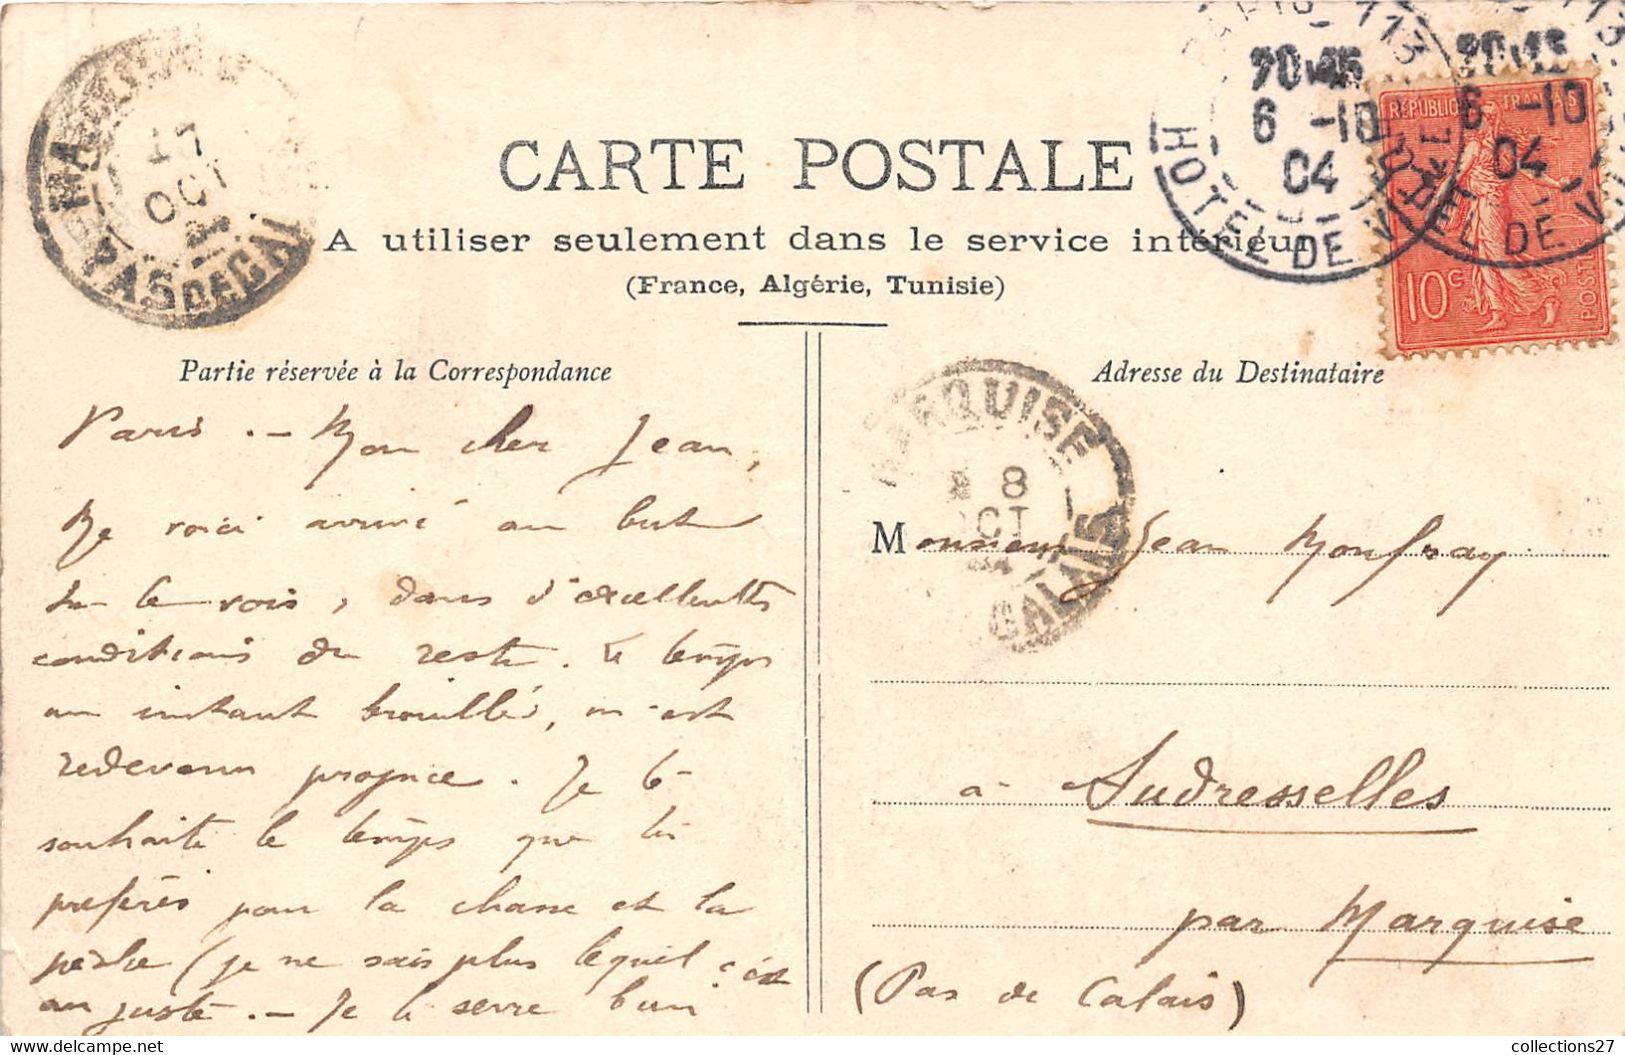 CARTE POSTALE
A utiliser seulement dans le service intérieur
(France, Algérie, Tunisie)
PARIS 113
20 45
6 -10
04
HOTEL DE VILLE
20 45
6 -10
04
HOTEL DE VILLE
REPUBLIQUE FRANCAISE
10c
POSTES
17
OCT
PAS DE CALAIS
Partie réservée à la Correspondance
Paris. - Mon cher Jean,
Me voici arrivé au but
du voisin, dans d'excellentes
conditions du reste. Le temps
un instant brouillé, m'est
redevenu propice. Je te
souhaite le temps que tu
préfères pour la chasse et la
pêche (je ne sais plus lequel c'est
au juste. - Je te serre bien
Adresse du Destinataire
MARQUISE
8
OCT
CALAIS
Monsieur Jean Monfray
à Audresselles
par Marquise
(Pas de Calais)
collections27